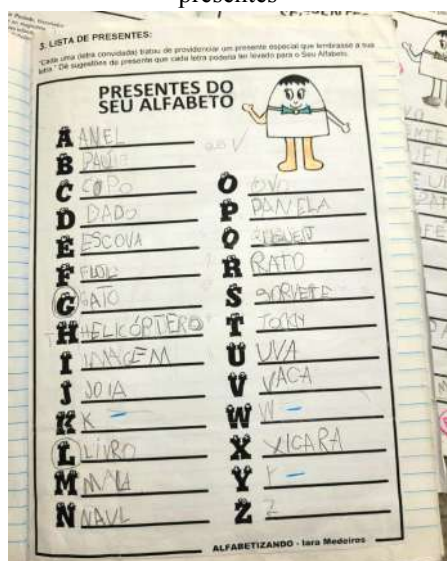 presentes
3. LISTA DE PRESENTES:
"Cada uma (letra convidada) tratou de providenciar um presente especial que lembrasse a sua
letra." Dê sugestões de presente que cada letra poderia ter levado para o Seu Alfabeto.
PRESENTES DO
SEU ALFABETO
A ANEL
B
C COPO
D DADO
E ESCOVA
F
G GATO
H HELICÓPTERO
I IMAGEM
J JOIA
K K -
L LIVRO
M MALA
N
O OVO
P PANELA
Q
R RATO
S SORVETE
T
U UVA
V VACA
W W -
X XICARA
Y Y -
Z Z
ALFABETIZANDO - Iara Medeiros